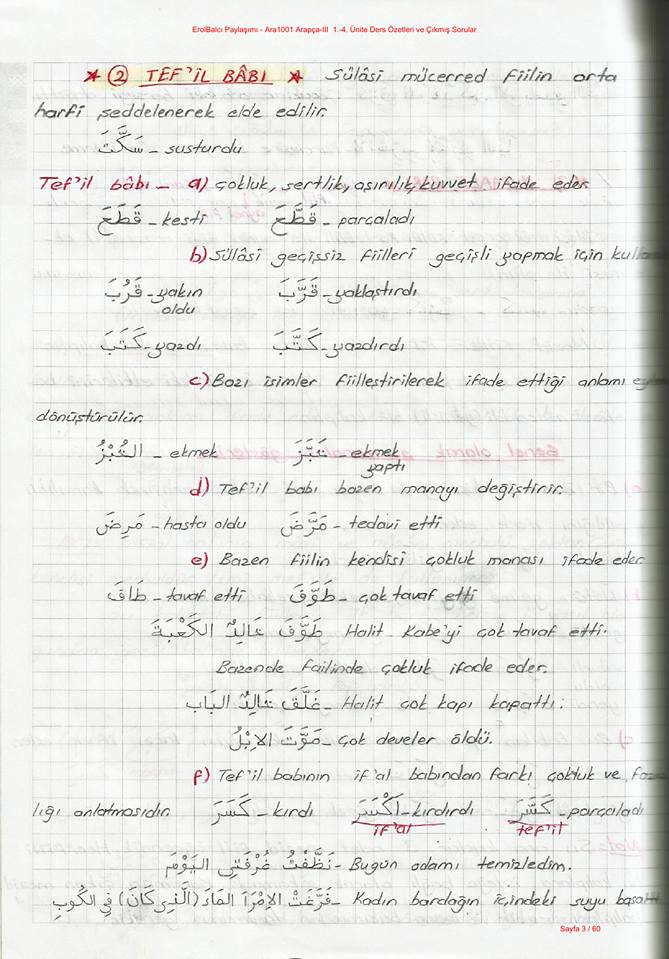 ErolBalcı Paylaşımı - Ara1001 Arapça-III 1.-4. Ünite Ders Özetleri ve Çıkmış Sorular
★ 2 TEF'İL BÂBI ★ Sülâsi mücerred fiilin orta
harfi şeddelenerek elde edilir.
سَكَّتَ – susturdu
Tef'il bâbı – a) Çokluk, sertlik, aşırılık, kuvvet ifade eder
قَطَعَ – kesti قَطَّعَ – parçaladı
b) Sülâsi geçişsiz fiilleri geçişli yapmak için
قَرُبَ – yakın oldu قَرَّبَ – yaklaştırdı
كَتَبَ – yazdı كَتَّبَ – yazdırdı
c) Bazı isimler fiilleştirilerek ifade ettiği anlamı
dönüştürülür.
الخُبْزُ – ekmek خَبَّزَ – ekmek yaptı
d) Tef'il babı bazen manayı değiştirir.
مَرِضَ – hasta oldu مَرَّضَ – tedavi etti
e) Bazen fiilin kendisi çokluk manası ifade eder
طَافَ – tavaf etti طَوَّفَ – çok tavaf etti
طَوَّفَ خَالِدٌ الكَعْبَةَ Halit Kabe'yi çok tavaf etti.
Bazende failinde çokluk ifade eder.
غَلَّقَ خَالِدٌ البَاب – Halit çok kapı kapattı.
مَوَّتَ الاِبْلُ – Çok develer öldü.
f) Tef'il babının if'al babından farkı çokluk ve
lığı anlatmasıdır. كَسَرَ – kırdı اَكْسَرَ – kırdırdı كَسَّرَ – parçaladı
if'al tef'il
نَظَّفْتُ غُرْفَتِي اليَوْمَ – Bugün odamı temizledim.
فَرَّغْتْ الاِمْرَآ المَاءَ (الَّذِي كَانَ) فِي الكُوبِ – Kadın bardağın içindeki suyu
Sayfa 3 / 60